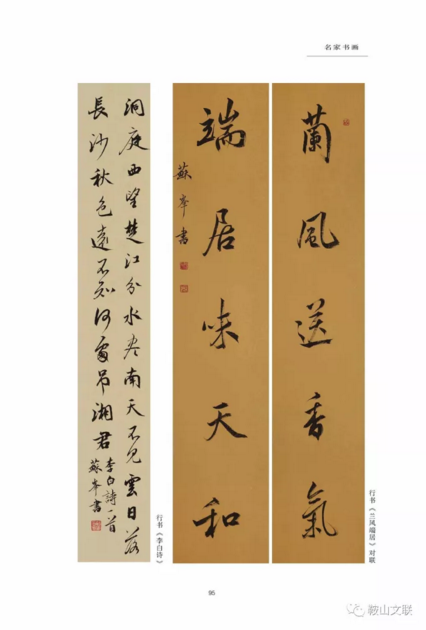 名家书画
蘭風送香氣
端居味天和
蘇峯書
行书《兰风端居》对联
洞庭西望楚江分水尽南天不见雲日落
長沙秋色遠不知何處吊湘君
李白詩一首
蘇峯書
行书《李白诗》
95
鞍山文联